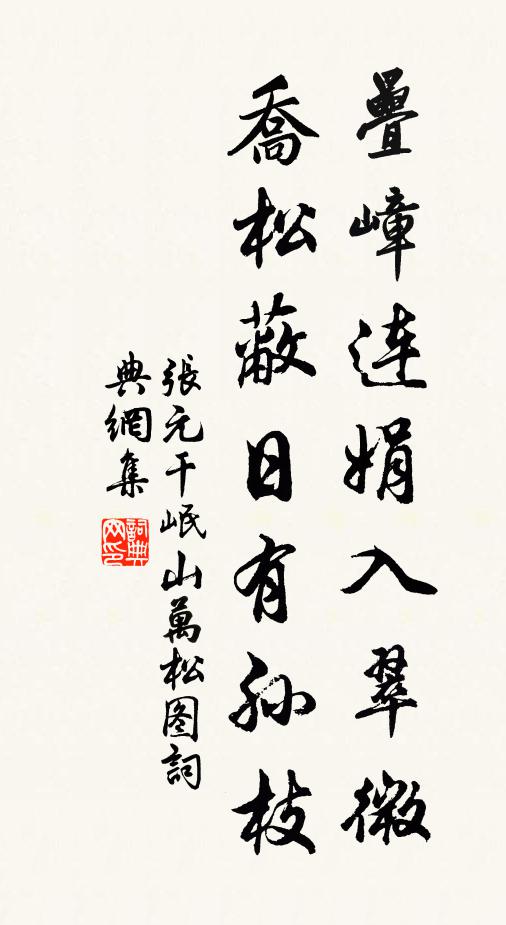 疊嶂連娟入翠微
喬松蔽日有孫枝
張元干岷山萬松图詞
典網集
詞典网印